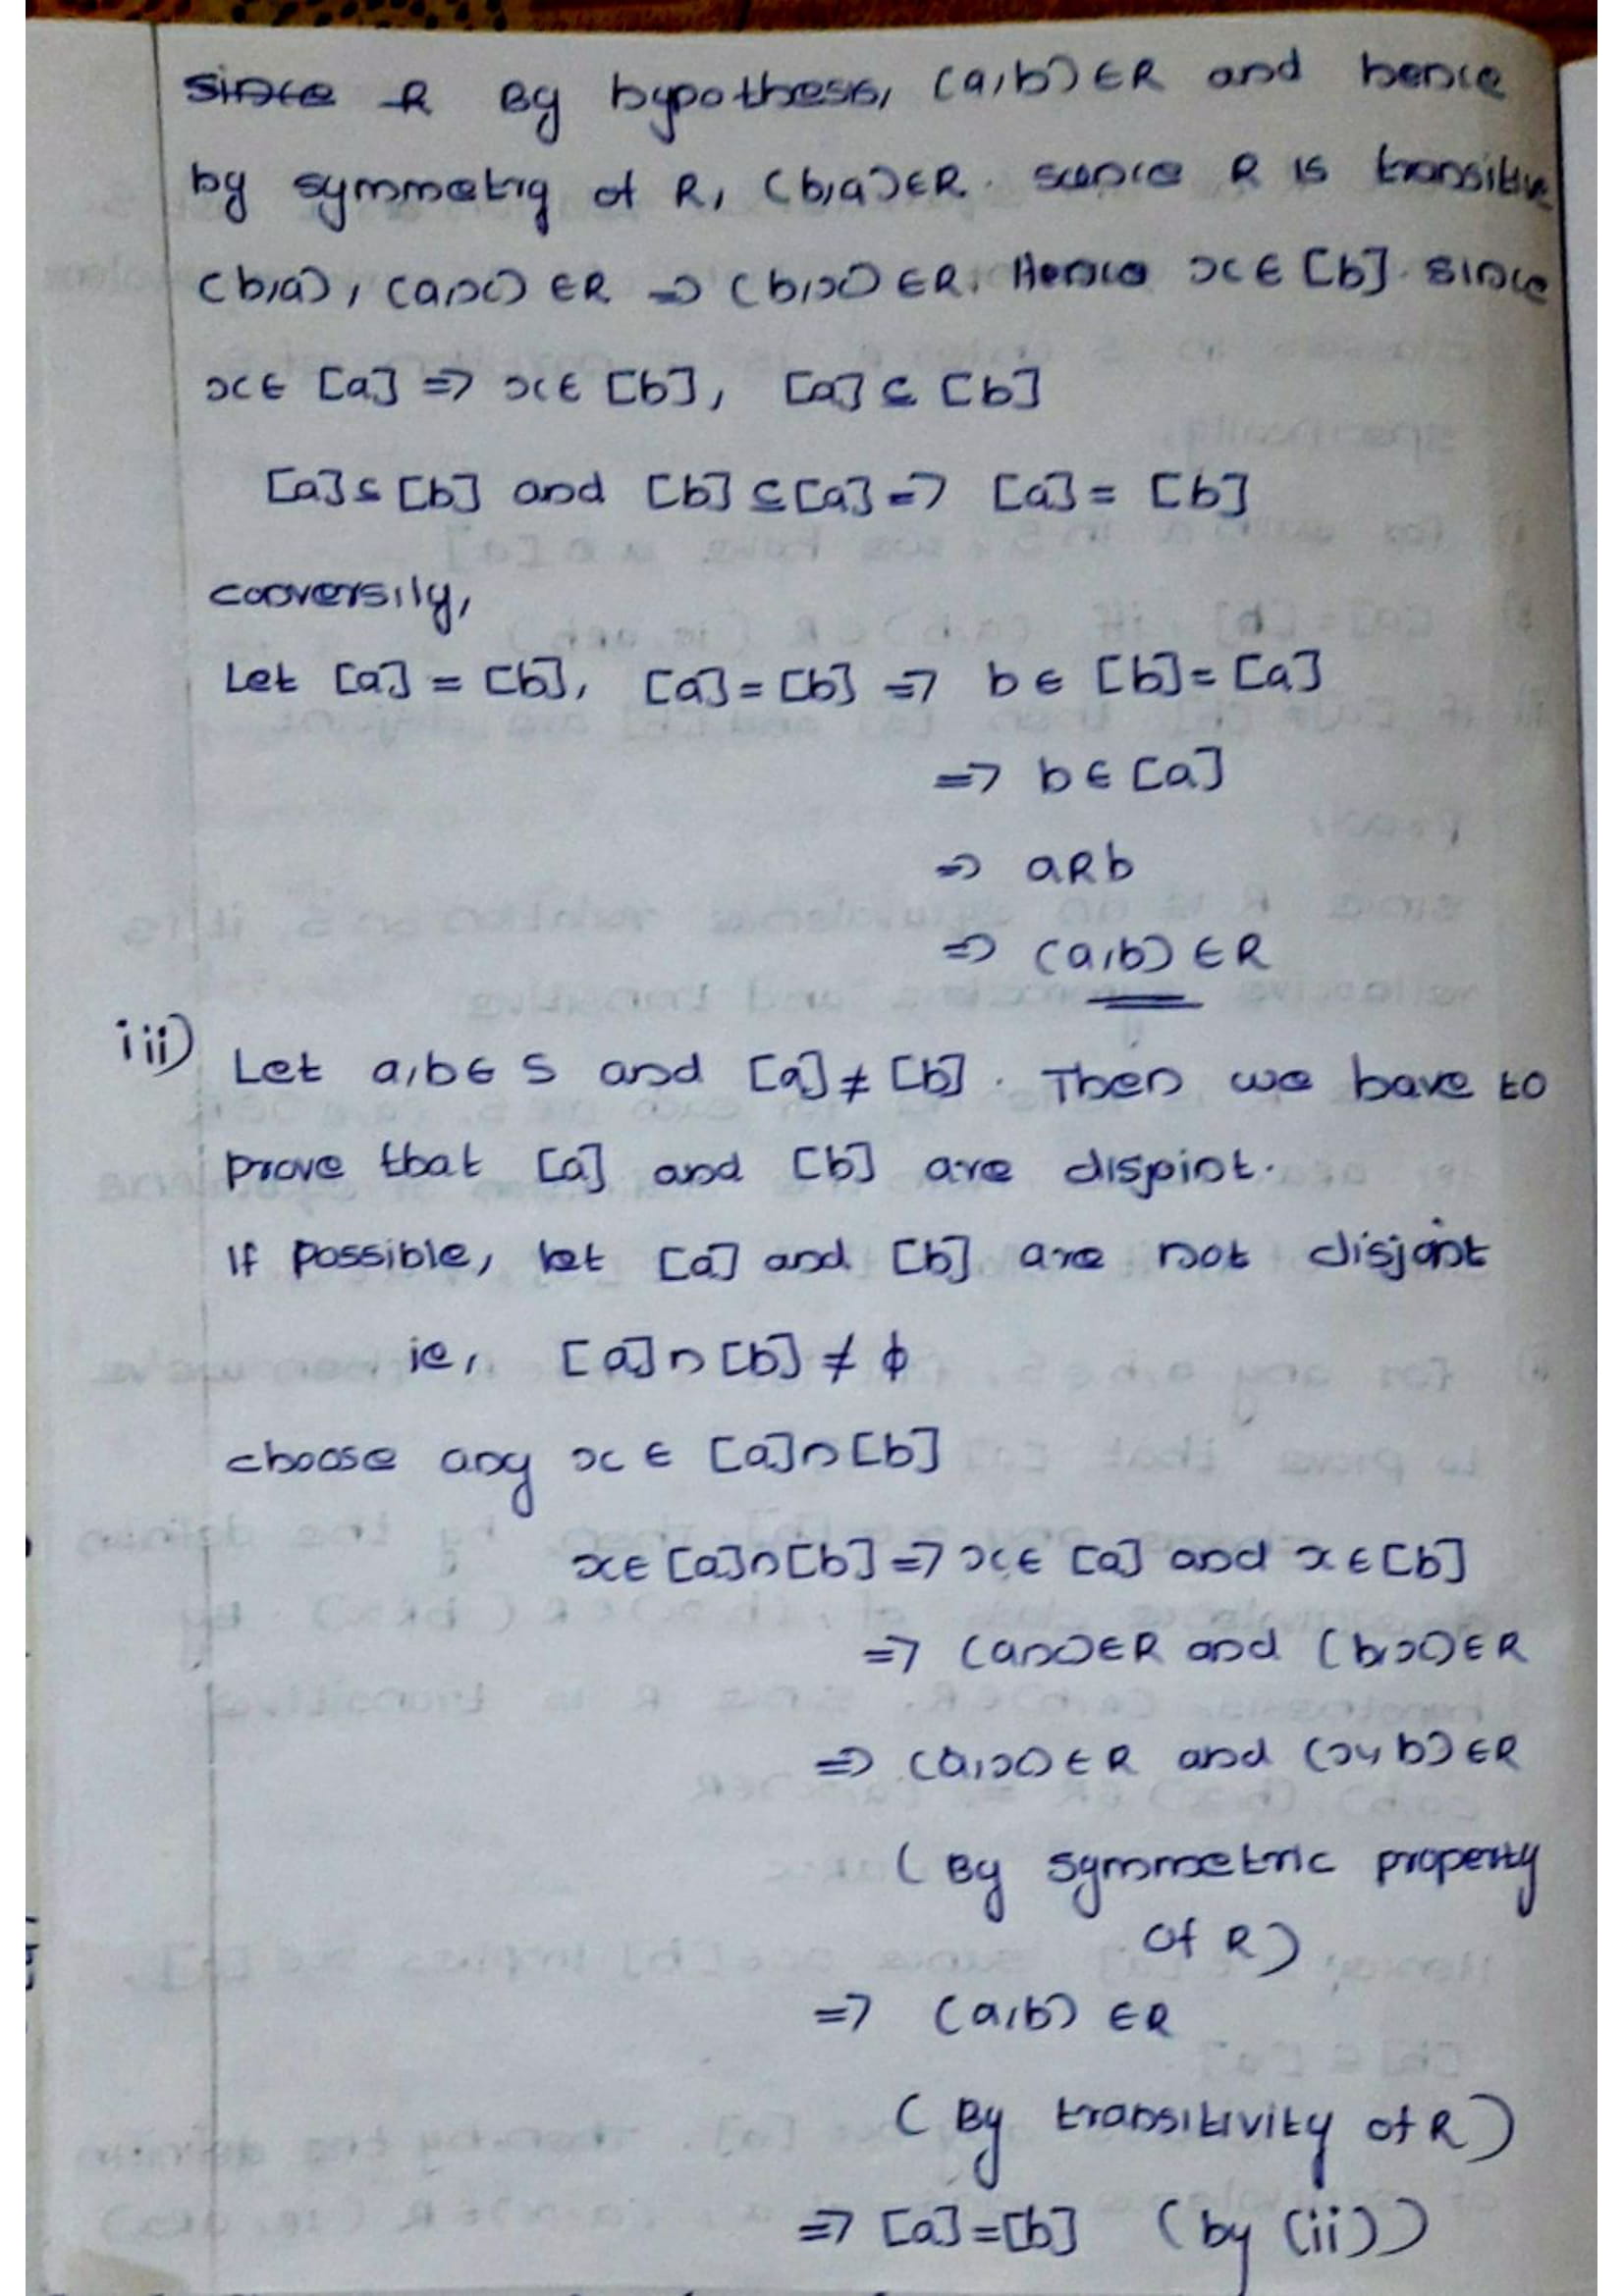 since R By hypothesis, (a,b)∈R and hence
by symmetry of R, (b,a)∈R. scence R is transitive
(b,a), (a,x) ∈R => (b,x)∈R. Hence x∈ [b]. since
x∈ [a] => x∈ [b], [a] ⊆ [b]
[a]⊆ [b] and [b] ⊆[a] => [a] = [b]
conversily,
Let [a] = [b], [a]=[b] => b∈ [b]=[a]
=> b∈[a]
=> aRb
=> (a,b) ∈R
iii) Let a,b∈ S and [a]≠[b]. Then we have to
prove that [a] and [b] are disjoint.
If possible, let [a] and [b] are not disjoint
ie, [a]∩[b] ≠ ϕ
choose any x∈ [a]∩[b]
x∈ [a]∩[b] => x∈ [a] and x∈[b]
=> (a,x)∈R and (b,x)∈R
=> (a,x)∈R and (x,b)∈R
(By symmetric property
of R)
=> (a,b) ∈R
(By transitivity of R)
=> [a]=[b] (by (ii))